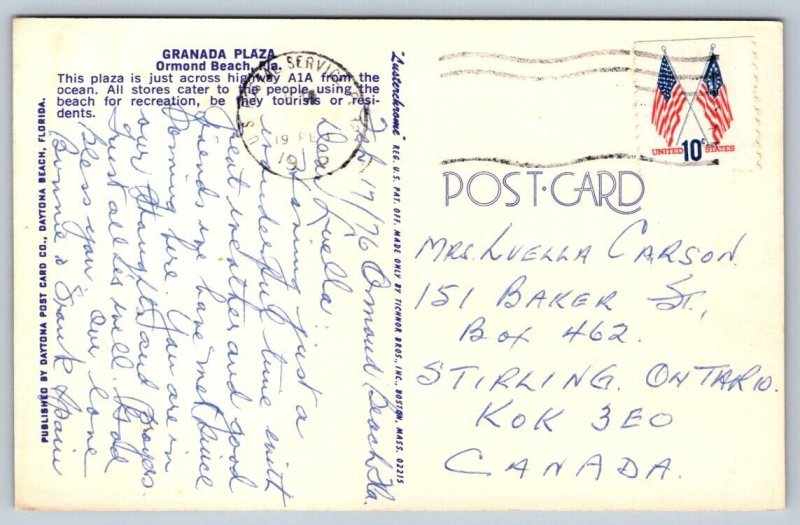 GRANADA PLAZA
Ormond Beach, Fla.
This plaza is just across highway A1A from the
ocean. All stores cater to the people using the
beach for recreation, be they tourists or resi-
dents.
PUBLISHED BY DAYTONA POST CARD CO., DAYTONA BEACH, FLORIDA.
"Lusterchrome" REG. U.S. PAT. OFF. MADE ONLY BY TICHNOR BROS., INC., BOSTON, MASS. 02215
U.S. POSTAL SERVICE
19 FEB
19
UNITED 10c STATES
POST-CARD
Feb 17/76 Ormond Beach Fla.
Dear Luella:
Having just a
wonderful time with
great weather and good
friends we have met since
coming here. You are in
our thoughts and prayers.
Trust all is well. God
bless you. Our love
Bunnie & Frank
MRS. LUELLA CARSON.
151 BAKER ST.,
BOX 462.
STIRLING. ONTARIO.
K0K 3E0
CANADA.